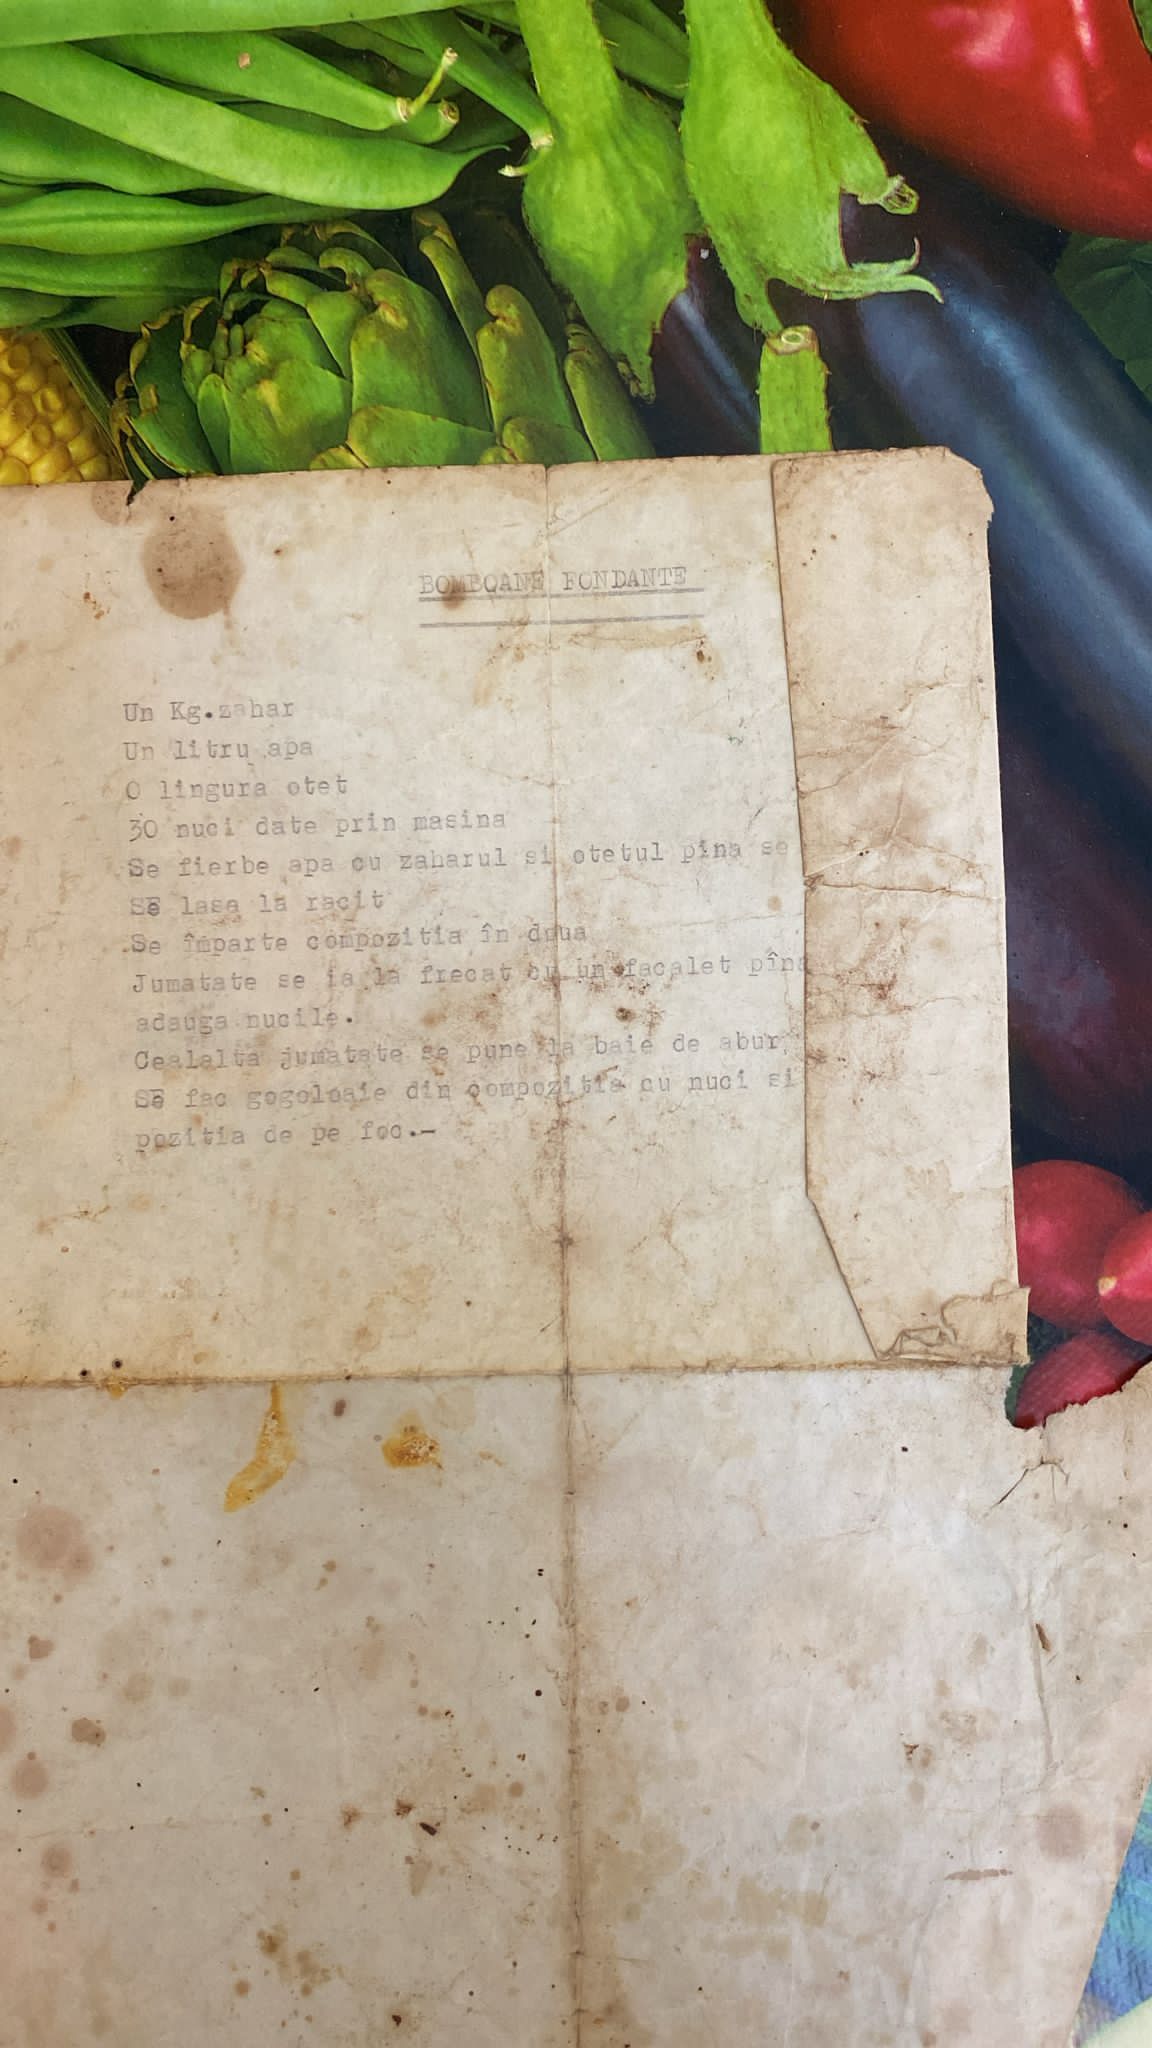 BOMBOANE FONDANTE
Un Kg.zahar
Un litru apa
O lingura otet
30 nuci date prin masina
Se fierbe apa cu zaharul si otetul pîna se
SE lasa la racit
Se împarte compozitia în doua
Jumatate se ia la frecat cu un facalet pîna
adauga nucile.
Cealalta jumatate se pune la baie de abur,
SE fac gogoloaie din compozitia cu nuci si
pozitia de pe foc.-